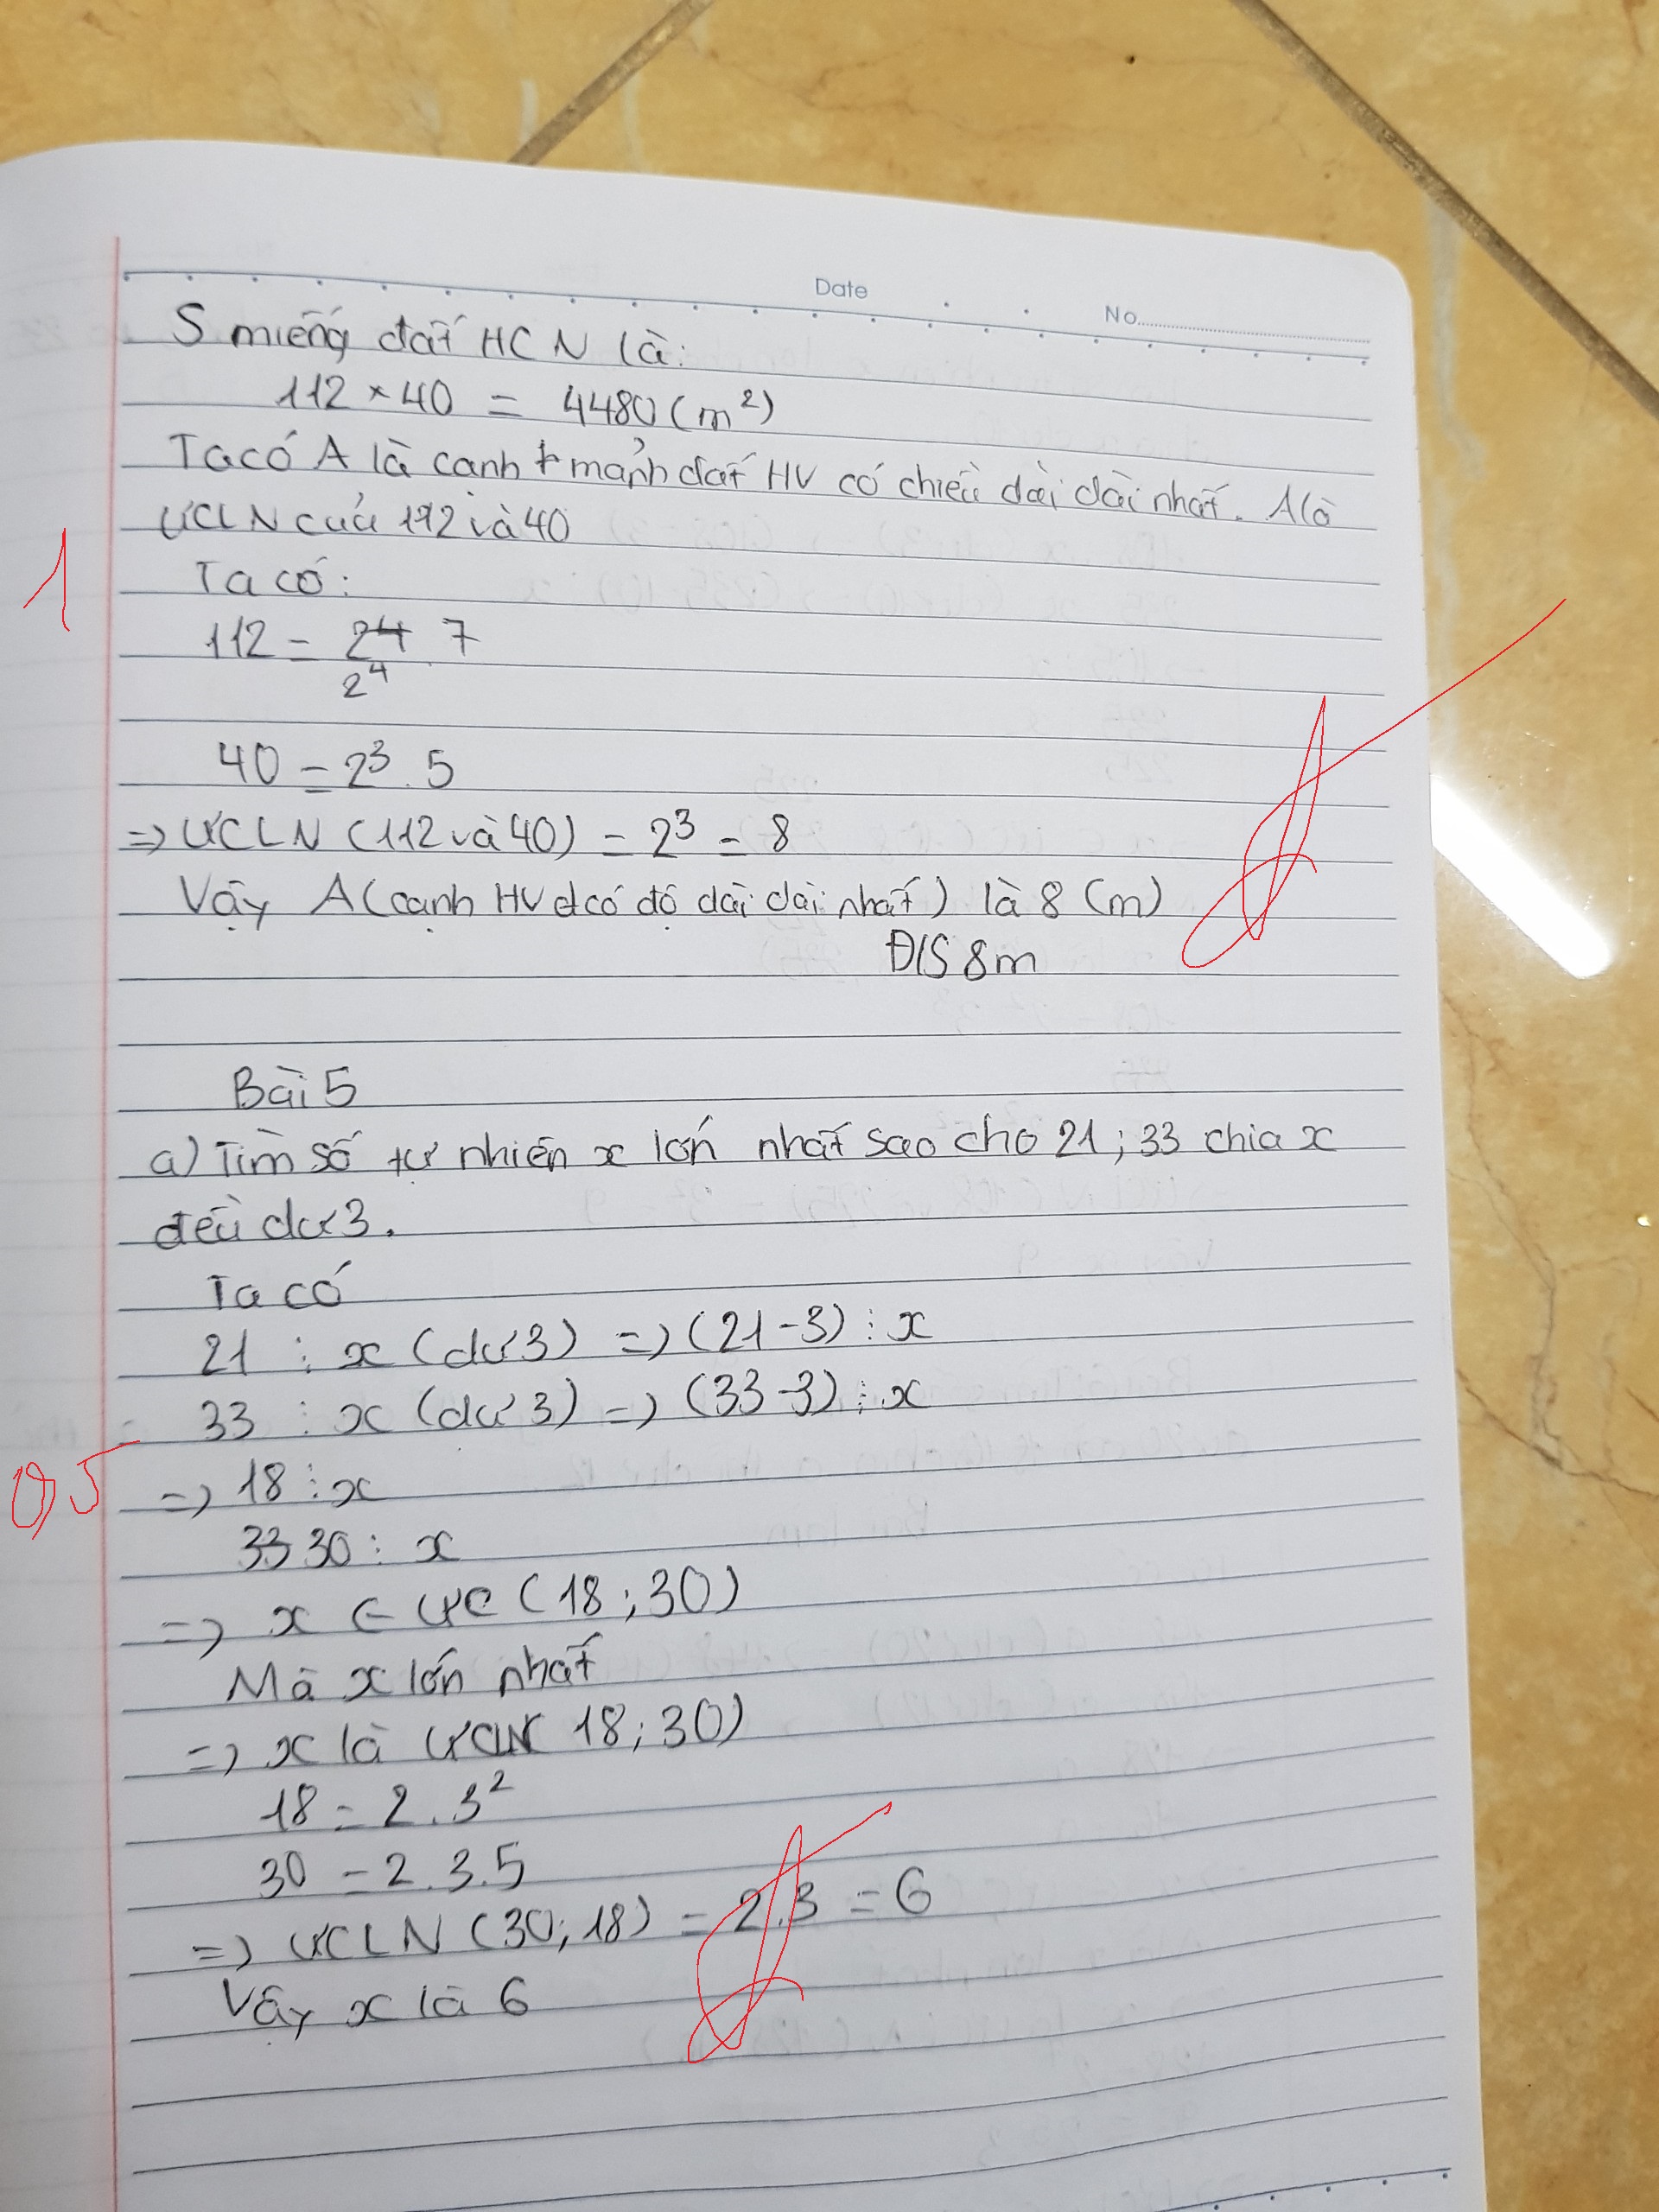 Date
No.
S miếng đất HCN là:
112 × 40 = 4480 (m²)
Ta có A là cạnh mảnh đất HV có chiều dài dài nhất. A là
ƯCLN của 112 và 40
1
Ta có:
112 = 24 7
2⁴
40 = 2³ . 5
=> ƯCLN (112 và 40) = 2³ = 8
Vậy A (cạnh HV có độ dài dài nhất) là 8 (m)
Đ/S 8m
Bài 5
a) Tìm số tự nhiên x lớn nhất sao cho 21 ; 33 chia x
đều dư 3.
Ta có
21 : x (dư 3) => (21 - 3) ⋮ x
33 : x (dư 3) => (33 - 3) ⋮ x
0,5
=> 18 ⋮ x
33 30 ⋮ x
=> x ∈ ƯC (18 ; 30)
Mà x lớn nhất
=> x là ƯCLN 18 ; 30)
18 = 2 . 3²
30 = 2 . 3 . 5
=> ƯCLN (30 ; 18) = 2 . 3 = 6
Vậy x là 6